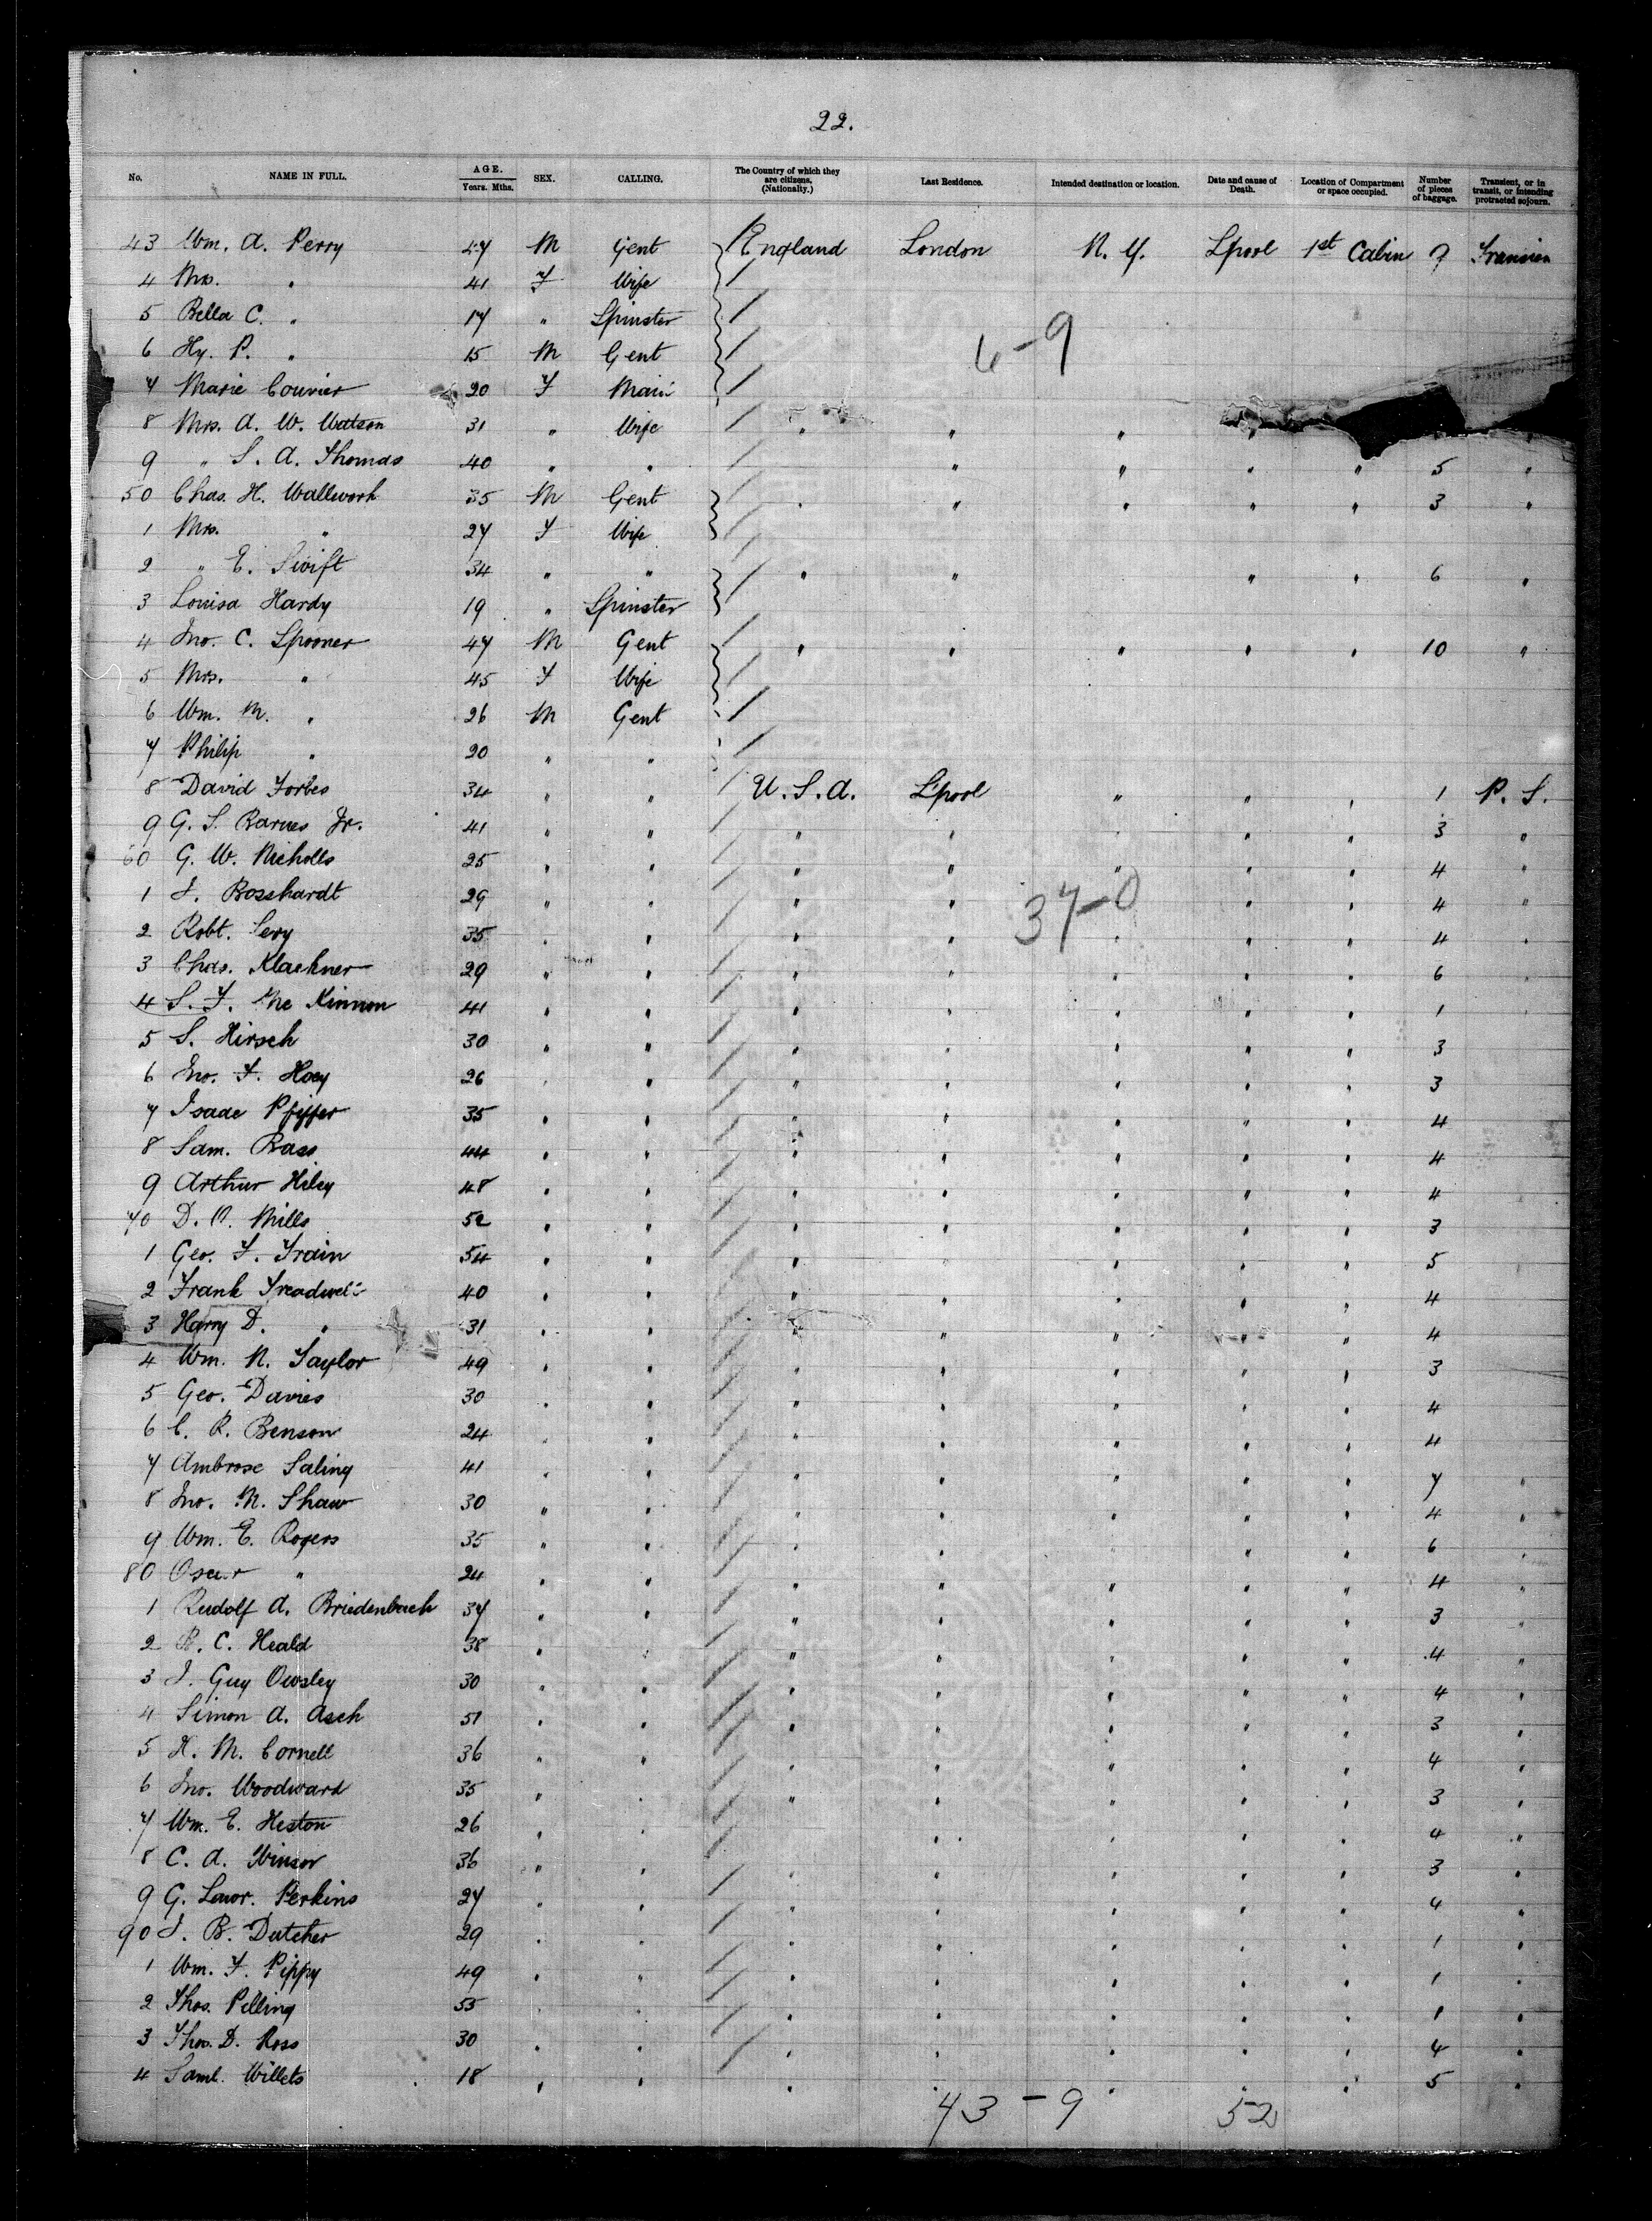 22.
No. NAME IN FULL. AGE. Years. Mths. SEX. CALLING. The Country of which they are citizens. (Nationality.) Last Residence. Intended destination or location. Date and cause of Death. Location of Compartment or space occupied. Number of pieces of baggage. Transient, or in transit, or intending protracted sojourn.
43 Wm. A. Perry 47 M Gent England London N. Y. Lpool 1st Cabin 7
4 Mrs. " 41 F Wife
5 Bella C. " 17 " Spinster
6 Hy. P. " 15 M Gent 6-9
7 Marie Couvier 20 F Maid
8 Mrs. A. W. Watson 31 " Wife " " " "
9 " S. A. Thomas 40 " " " " " " 5 "
50 Chas. H. Wallwork 35 M Gent " " " " " 3 "
1 Mrs. " 27 F Wife
2 " E. Swift 34 " " " " " " 6 "
3 Louisa Hardy 19 " Spinster
4 Jno. C. Spooner 47 M Gent " " " " " 10 "
5 Mrs. " 45 F Wife
6 Wm. M. " 26 M Gent
7 Philip " 20 " "
8 David Forbes 34 " " U. S. A. L'pool " " " 1 P. S.
9 G. S. Barnes Jr. 41 " " " " " " " 3 "
60 G. W. Nicholls 25 " " " " " " " 4 "
1 J. Bosshardt 29 " " " " 37-0 " " 4 "
2 Robt. Levy 35 " " " " " " " 4 "
3 Chas. Klackner 29 " " " " " " " 6 "
4 S. F. Mc Kinnon 41 " " " " " " " 1 "
5 S. Hirsch 30 " " " " " " " 3
6 Jno. F. Hoey 26 " " " " " " " 3
7 Isaac Pfiffer 35 " " " " " " " 4
8 Sam. Bass 44 " " " " " " " 4
9 Arthur Hiley 48 " " " " " " " 4
70 D. O. Mills 52 " " " " " " " 3
1 Geo. F. Train 54 " " " " " " " 5
2 Frank Treadwell 40 " " " " " " " 4
3 Harry D. " 31 " " " " " " " 4
4 Wm. N. Taylor 49 " " " " " " " 3
5 Geo. Davies 30 " " " " " " " 4
6 C. R. Benson 24 " " " " " " " 4
7 Ambrose Saling 41 " " " " " " " 7 "
8 Jno. M. Shaw 30 " " " " " " " 4 "
9 Wm. E. Rogers 35 " " " " " " " 6 "
80 Oscar " 24 " " " " " " " 4 "
1 Rudolf A. Briedenbach 37 " " " " " " " 3 "
2 R. C. Heald 38 " " " " " " " 4 "
3 J. Guy Owsley 30 " " " " " " " 4 "
4 Simon A. Asch 51 " " " " " " " 3 "
5 H. M. Cornell 36 " " " " " " " 4 "
6 Jno. Woodward 35 " " " " " " " 3 "
7 Wm. E. Heston 26 " " " " " " " 4 "
8 C. A. Winsor 36 " " " " " " " 3 "
9 G. Lawr. Perkins 27 " " " " " " " 4 "
90 J. B. Dutcher 29 " " " " " " " 1 "
1 Wm. F. Pippy 49 " " " " " " " 1 "
2 Thos. Pilling 53 " " " " " " " 1 "
3 Thos. D. Ross 30 " " " " " " " 4 "
4 Saml. Willets 18 " " " " " " " 5 "
43-9 52